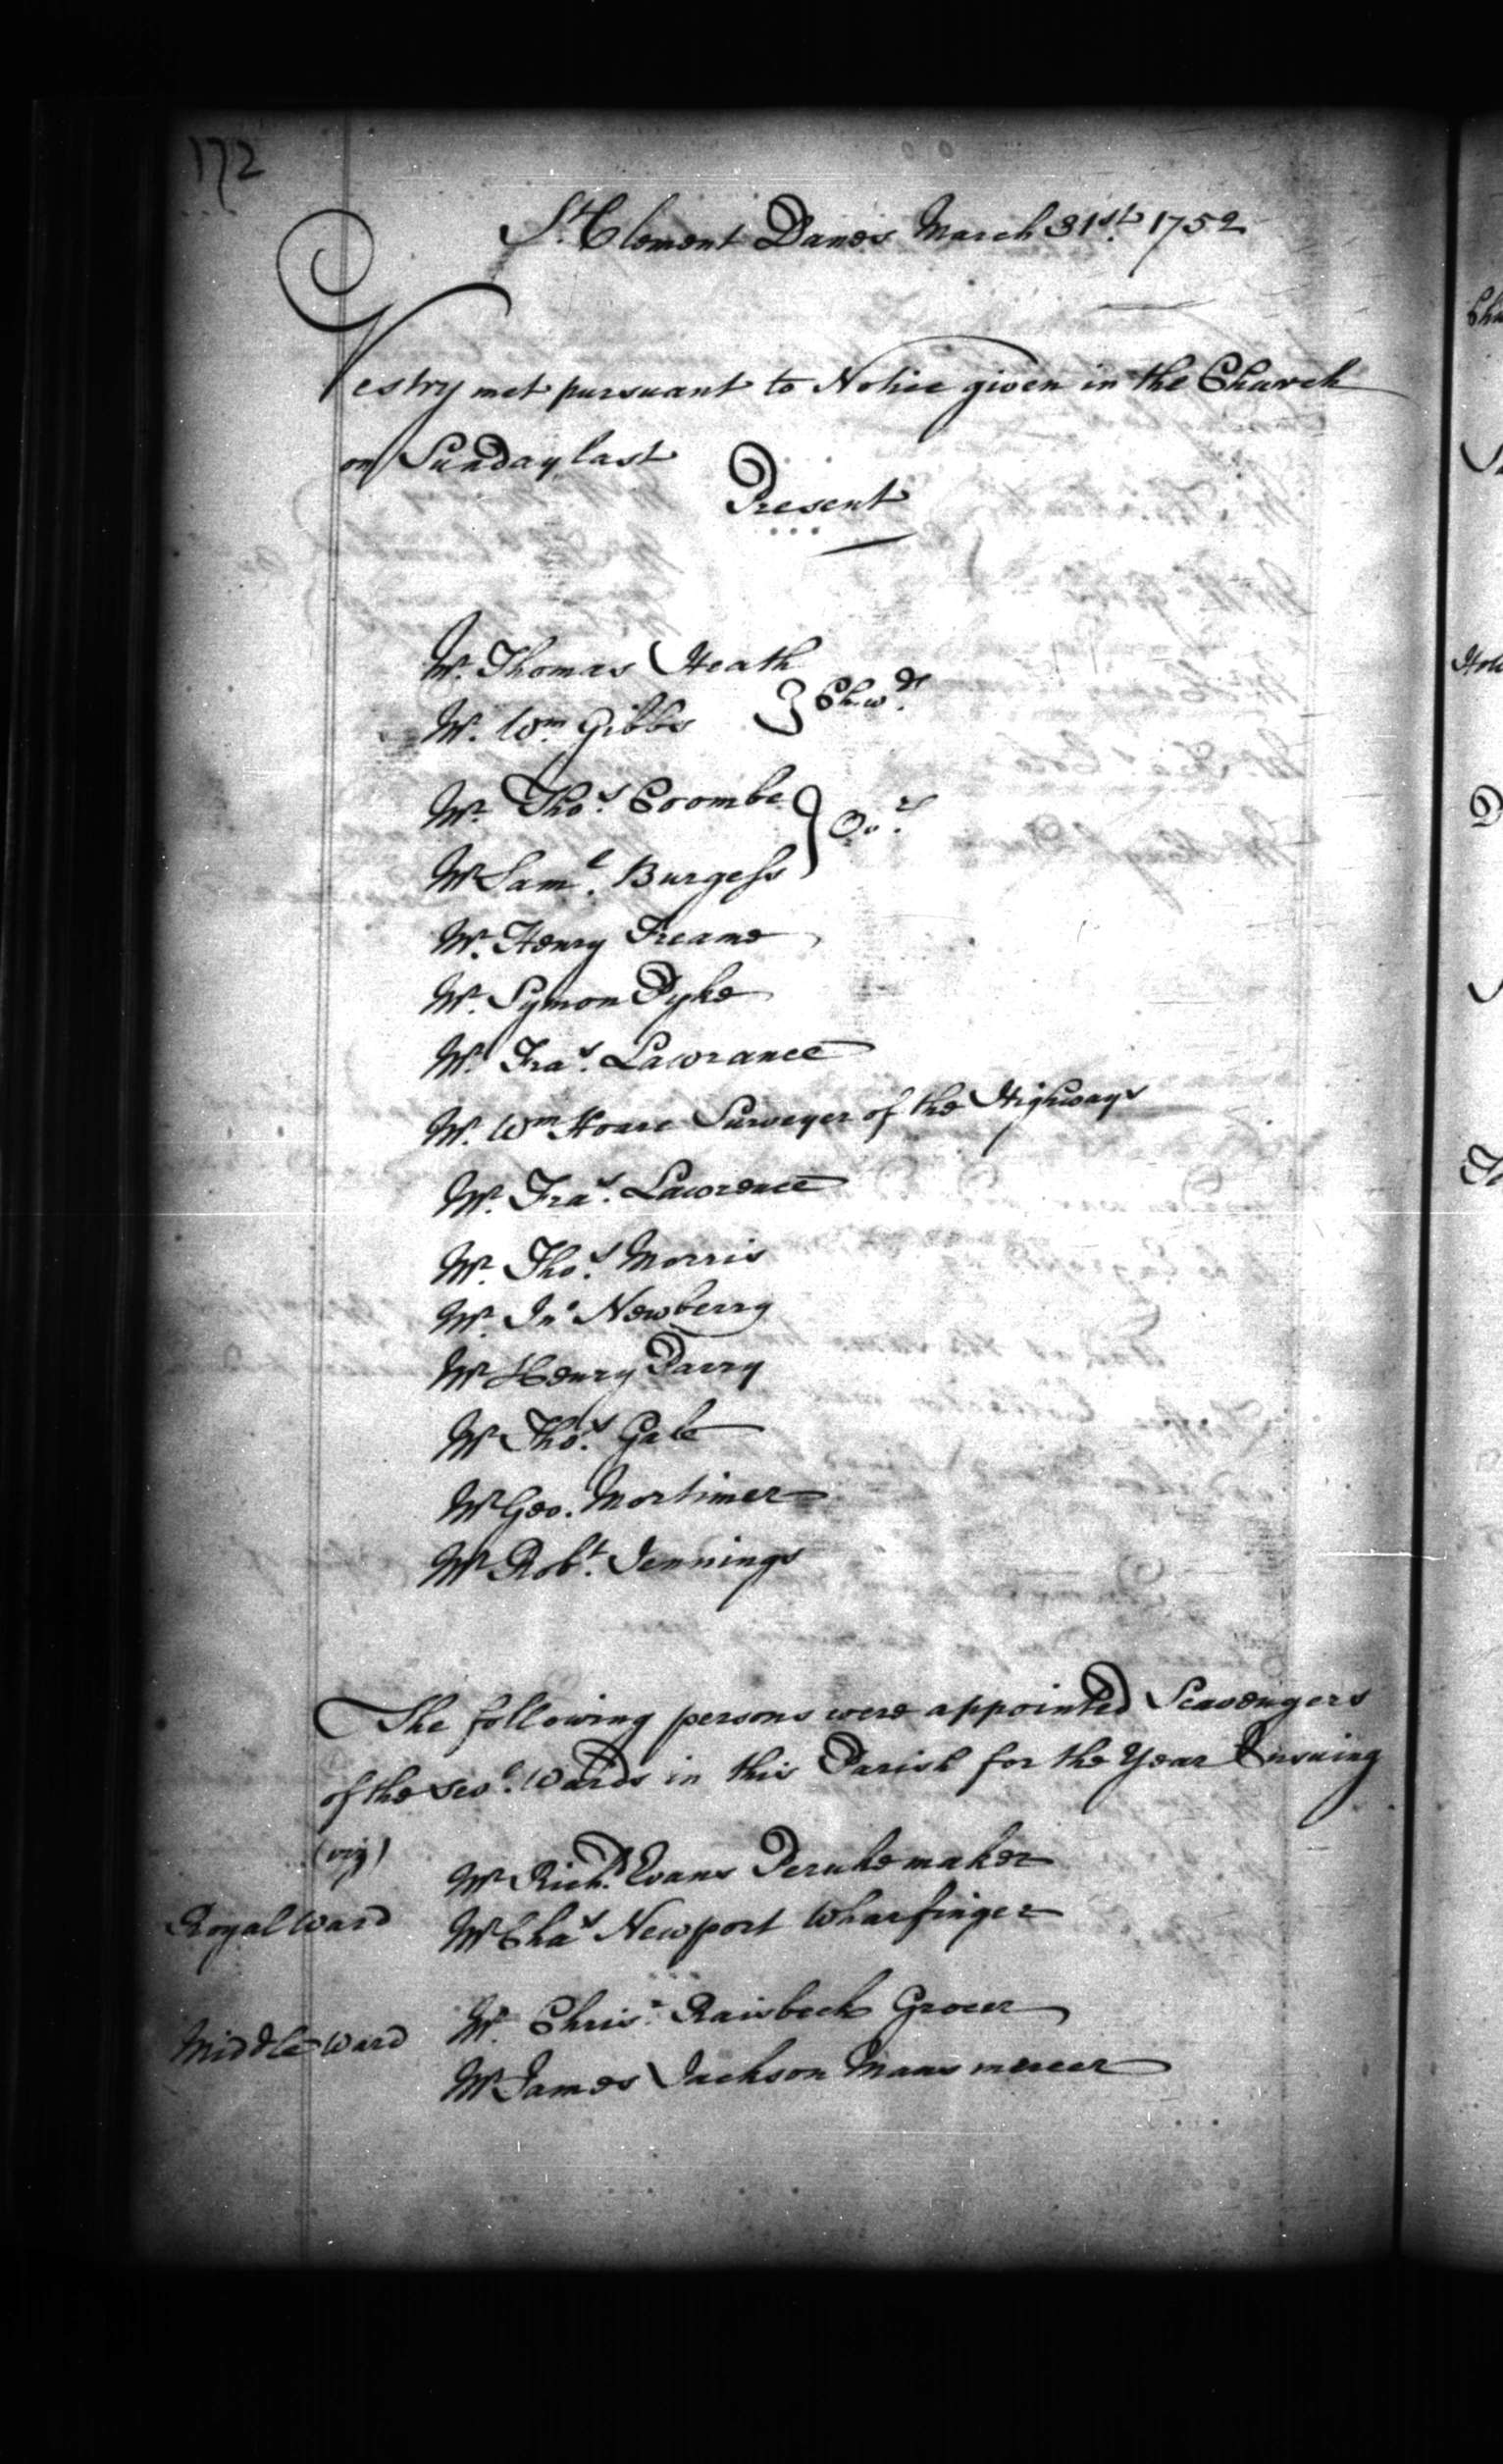 172
St. Clement Danes March 31st. 1752
Vestry met pursuant to Notice given in the Church
on Sunday last
Present
Mr. Thomas Heath
Mr. Wm. Gibbs } Chwds.
Mr. Thos. Coombe
Mr Saml. Burgess } Ovrs.
Mr. Henry Freame
Mr. Symon Dyke
Mr. Fras. Lawrance
Mr. Wm Hoare Surveyer of the Highways
Mr. Fras. Lawrence
Mr. Thos. Morris
Mr. Jno Newberry
Mr Henry Parry
Mr Thos. Gale
Mr Geo. Mortimer
Mr Robt. Jennings
The following persons were appointed Scavengers
of the sevl. Wards in this Parish for the Year Ensuing
(viz)
Mr Richd. Evans Perukemaker
Royal Ward Mr Chas Newport Wharfinger
Middle Ward Mr. Chrisr. Raisbeck Grocer
Mr James Jackson Mans mercer